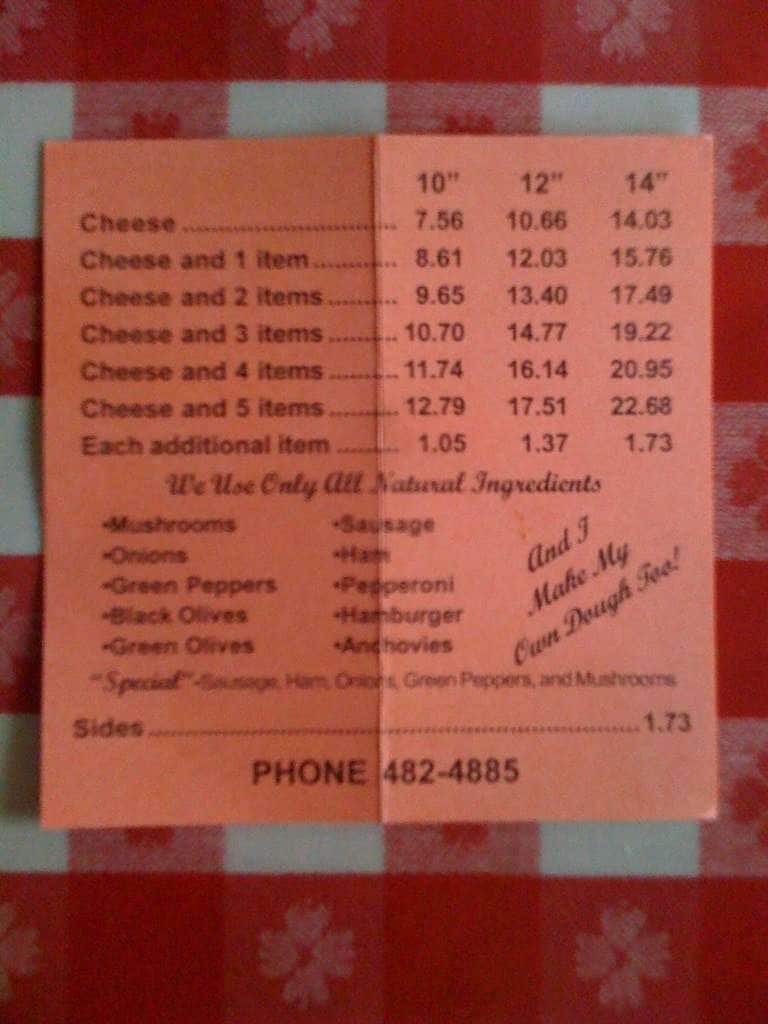 10” 12” 14”
Cheese ............................. 7.56 10.66 14.03
Cheese and 1 item............ 8.61 12.03 15.76
Cheese and 2 items .......... 9.65 13.40 17.49
Cheese and 3 items .......... 10.70 14.77 19.22
Cheese and 4 items .......... 11.74 16.14 20.95
Cheese and 5 items .......... 12.79 17.51 22.68
Each additional item ......... 1.05 1.37 1.73
We Use Only All Natural Ingredients
•Mushrooms •Sausage
•Onions •Ham
•Green Peppers •Pepperoni
•Black Olives •Hamburger
•Green Olives •Anchovies
And I
Make My
Own Dough Too!
“Special”-Sausage, Ham, Onions, Green Peppers, and Mushrooms
Sides ................................................................ 1.73
PHONE 482-4885